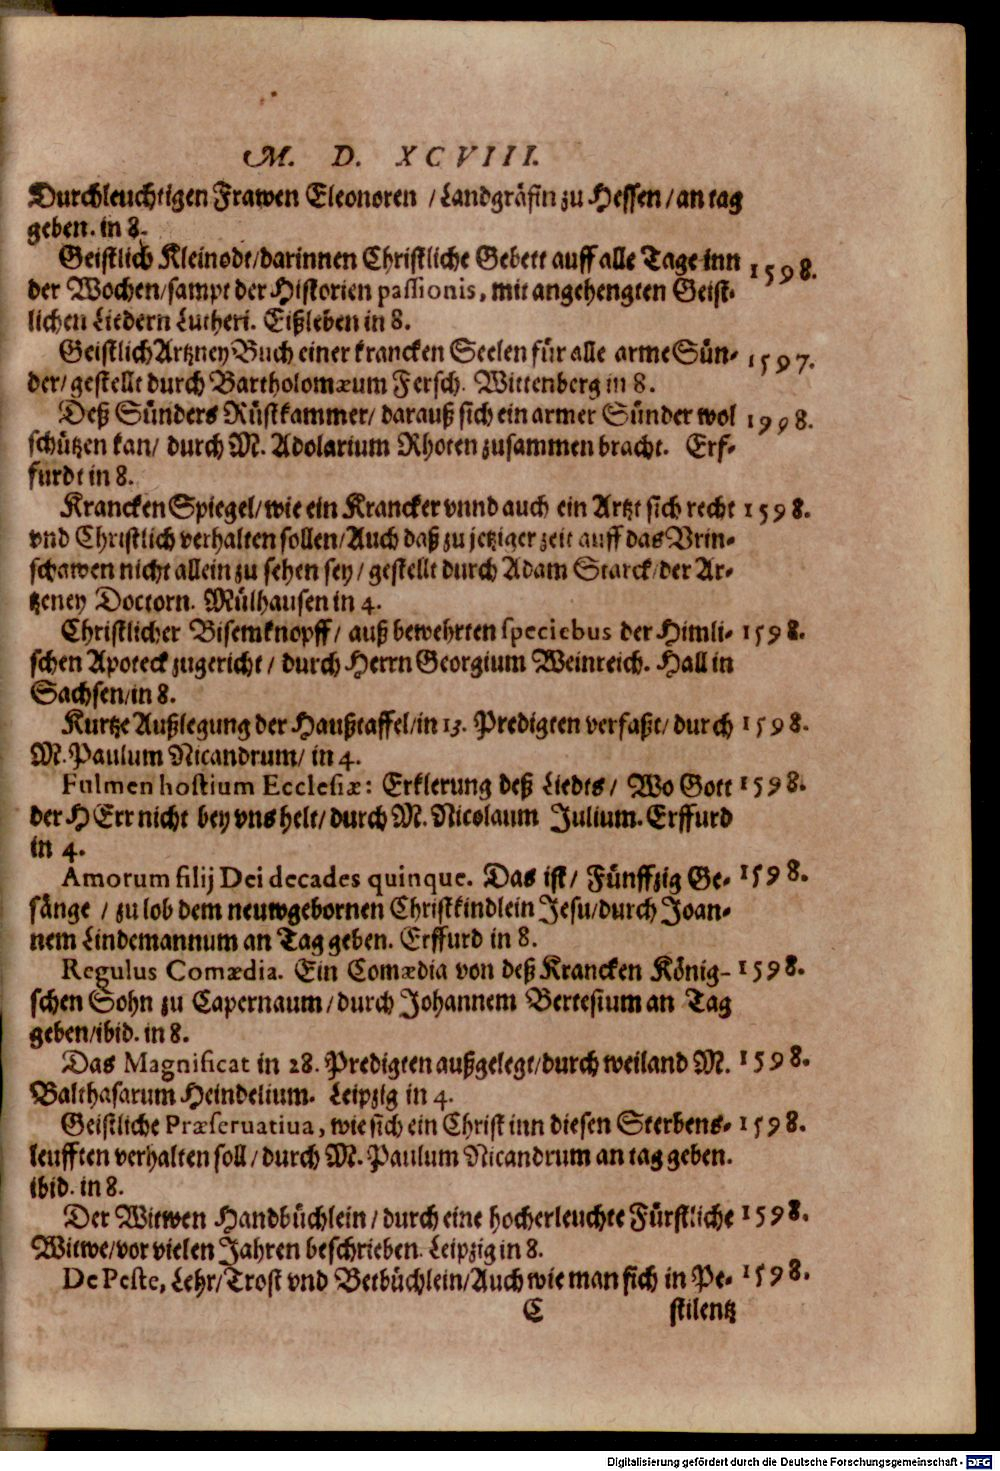 M. D. XCVIII.
Durchleuchtigen Frawen Eleonoren / Landgräfin zu Hessen / an tag
geben. in 8.
Geistlich Kleinodt / darinnen Christliche Gebett auff alle Tage inn 1598.
der Wochen / sampt der Historien passionis, mit angehengten Geist-
lichen Liedern Lutheri. Eißleben in 8.
Geistlich Artzney Buch einer krancken Seelen für alle arme Sün- 1597.
der / gestellt durch Bartholomæum Fersch. Wittenberg in 8.
Deß Sünders Rüstkammer / darauß sich ein armer Sünder wol 1998.
schützen kan / durch M. Adolarium Rhoten zusammen bracht. Erf-
furdt in 8.
Krancken Spiegel / wie ein Krancker vnnd auch ein Artzt sich recht 1598.
vnd Christlich verhalten sollen / Auch daß zu jetziger zeit auff das Vrin-
schawen nicht allein zu sehen sey / gestellt durch Adam Starck / der Ar-
tzeney Doctorn. Mülhausen in 4.
Christlicher Bisemknopff / auß bewehrten speciebus der Himli- 1598.
schen Apoteck zugericht / durch Herrn Georgium Weinreich. Hall in
Sachsen / in 8.
Kurtze Außlegung der Haußtaffel / in 13. Predigten verfaßt / durch 1598.
M. Paulum Nicandrum / in 4.
Fulmen hostium Ecclesiæ: Erklerung deß Liedts / Wo Gott 1598.
der HErr nicht bey vns helt / durch M. Nicolaum Julium. Erffurd
in 4.
Amorum filij Dei decades quinque. Das ist / Fünffzig Ge- 1598.
sänge / zu lob dem neuwgebornen Christkindlein Jesu / durch Joan-
nem Lindemannum an Tag geben. Erffurd in 8.
Regulus Comædia. Ein Comædia von deß Krancken König- 1598.
schen Sohn zu Capernaum / durch Johannem Bertesium an Tag
geben / ibid. in 8.
Das Magnificat in 28. Predigten außgelegt / durch weiland M. 1598.
Balthasarum Heindelium. Leipzig in 4.
Geistliche Præseruatiua, wie sich ein Christ inn diesen Sterbens- 1598.
leufften verhalten soll / durch M. Paulum Nicandrum an tag geben.
ibid. in 8.
Der Witwen Handbüchlein / durch eine hocherleuchte Fürstliche 1598.
Witwe / vor vielen Jahren beschrieben. Leipzig in 8.
De Peste, Lehr / Trost vnd Betbüchlein / Auch wie man sich in Pe- 1598.
C stilentz
Digitalisierung gefördert durch die Deutsche Forschungsgemeinschaft - DFG